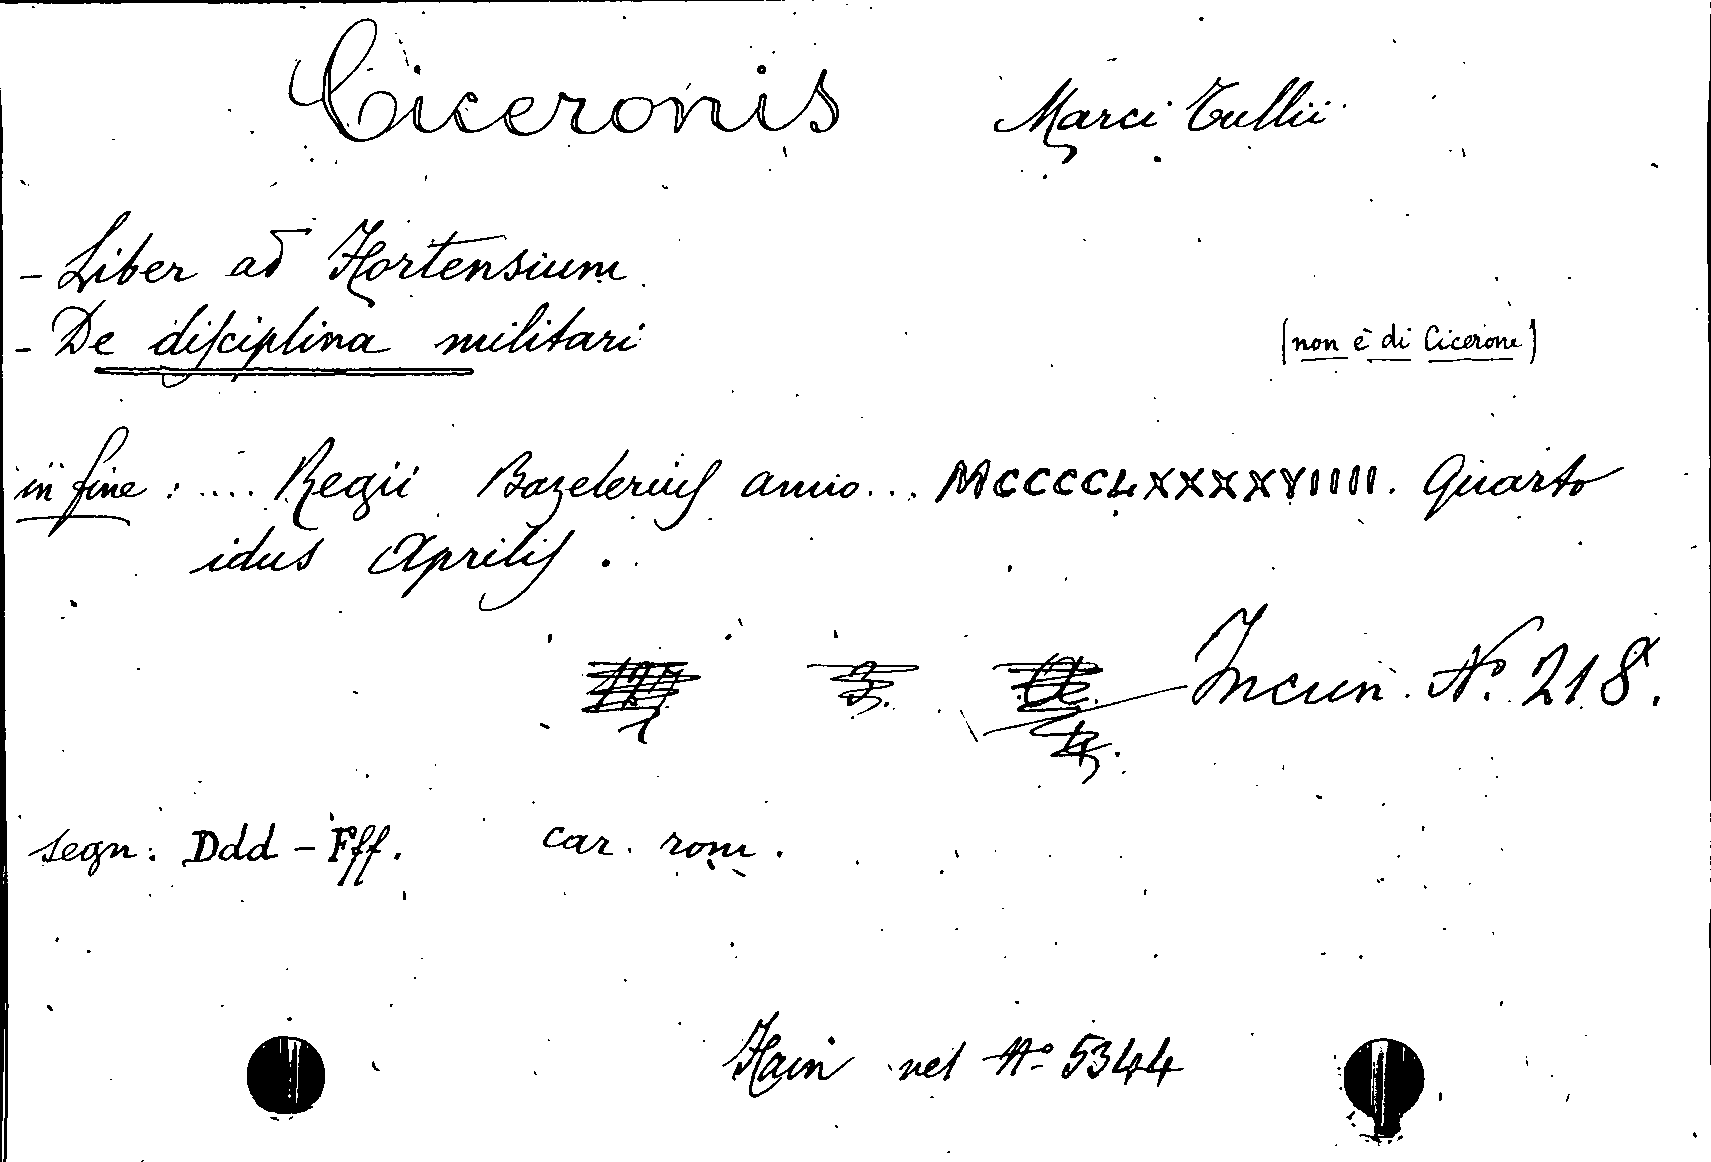 Ciceronis Marci Tullii
- Liber ad Hortensium
- De disciplina militari (non è di Cicerone)
in fine: .... Regii Bazelerius anno... MCCCCLXXXXVIIII. Quarto
idus Aprilis.
Incun. N.° 218.
segn: Ddd - Fff. car. rom.
Hain nel N.° 5344